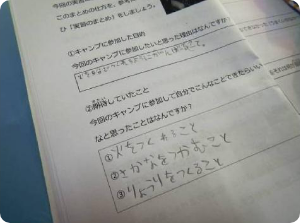 このまとめの仕方を、参考
ひ「実習のまとめ」をしましょう。
①キャンプに参加した目的
今回のキャンプに参加したいと思った理由はなんですか？
②期待していたこと
今回のキャンプに参加して自分でこんなことできたらいい
なと思ったことはなんですか？
①火をつくること
②さかなをつかむこと
③りょうりをつくること